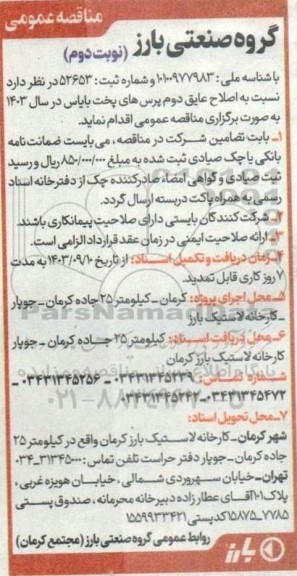 مناقصه عمومی
گروه صنعتی بارز (نوبت دوم)
با شناسه ملی : ۱۰۱۰۰۹۷۷۹۸۳ و شماره ثبت : ۵۲۶۵۳ در نظر دارد
نسبت به اصلاح عایق دوم پرس های پخت بایاس در سال ۱۴۰۳
به صورت برگزاری مناقصه عمومی اقدام نماید.
۱ـ بابت تضامین شرکت در مناقصه ، می بایست ضمانت نامه
بانکی یا چک صیادی ثبت شده به مبلغ ۸۵۰/۰۰۰/۰۰۰ ریال و رسید
ثبت صیادی و گواهی امضاء صادرکننده چک از دفترخانه اسناد
رسمی به همراه پاکت دربسته ارسال گردد.
۲ـ شرکت کنندگان بایستی دارای صلاحیت پیمانکاری باشند.
۳ـ ارائه صلاحیت ایمنی در زمان عقد قرارداد الزامی است.
۴ـ زمان دریافت و تکمیل اسناد: از تاریخ ۱۴۰۳/۰۹/۱۰ به مدت
۷ روز کاری قابل تمدید.
۵ـ محل اجرای پروژه: کرمان ـ کیلومتر ۲۵ جاده کرمان ـ جوپار
ـ کارخانه لاستیک بارز
۶ـ محل دریافت اسناد: کیلومتر ۲۵ جاده کرمان ـ جوپار
کارخانه لاستیک بارز کرمان
شماره تماس: ۰۳۴۳۱۳۴۵۲۳۹ ـ ۰۳۴۳۱۳۴۵۲۵۶ ـ
۰۳۴۳۱۳۴۵۲۴۲-۰۳۴۳۱۳۴۵۴۷۲
۷ـ محل تحویل اسناد:
شهر کرمان ـ کارخانه لاستیک بارز کرمان واقع در کیلومتر ۲۵
جاده کرمان ـ جوپار دفتر حراست تلفن تماس : ۳۱۳۴۵۰۰۰-۰۳۴
تهران ـ خیابان سهروردی شمالی ، خیابان هویزه غربی ،
پلاک ۱۰۱ آقای عطارزاده دبیرخانه محرمانه ، صندوق پستی
۷۷۸۵ـ۱۵۸۷۵ کدپستی ۱۵۵۹۹۳۳۴۲۱
روابط عمومی گروه صنعتی بارز (مجتمع کرمان)
بارز